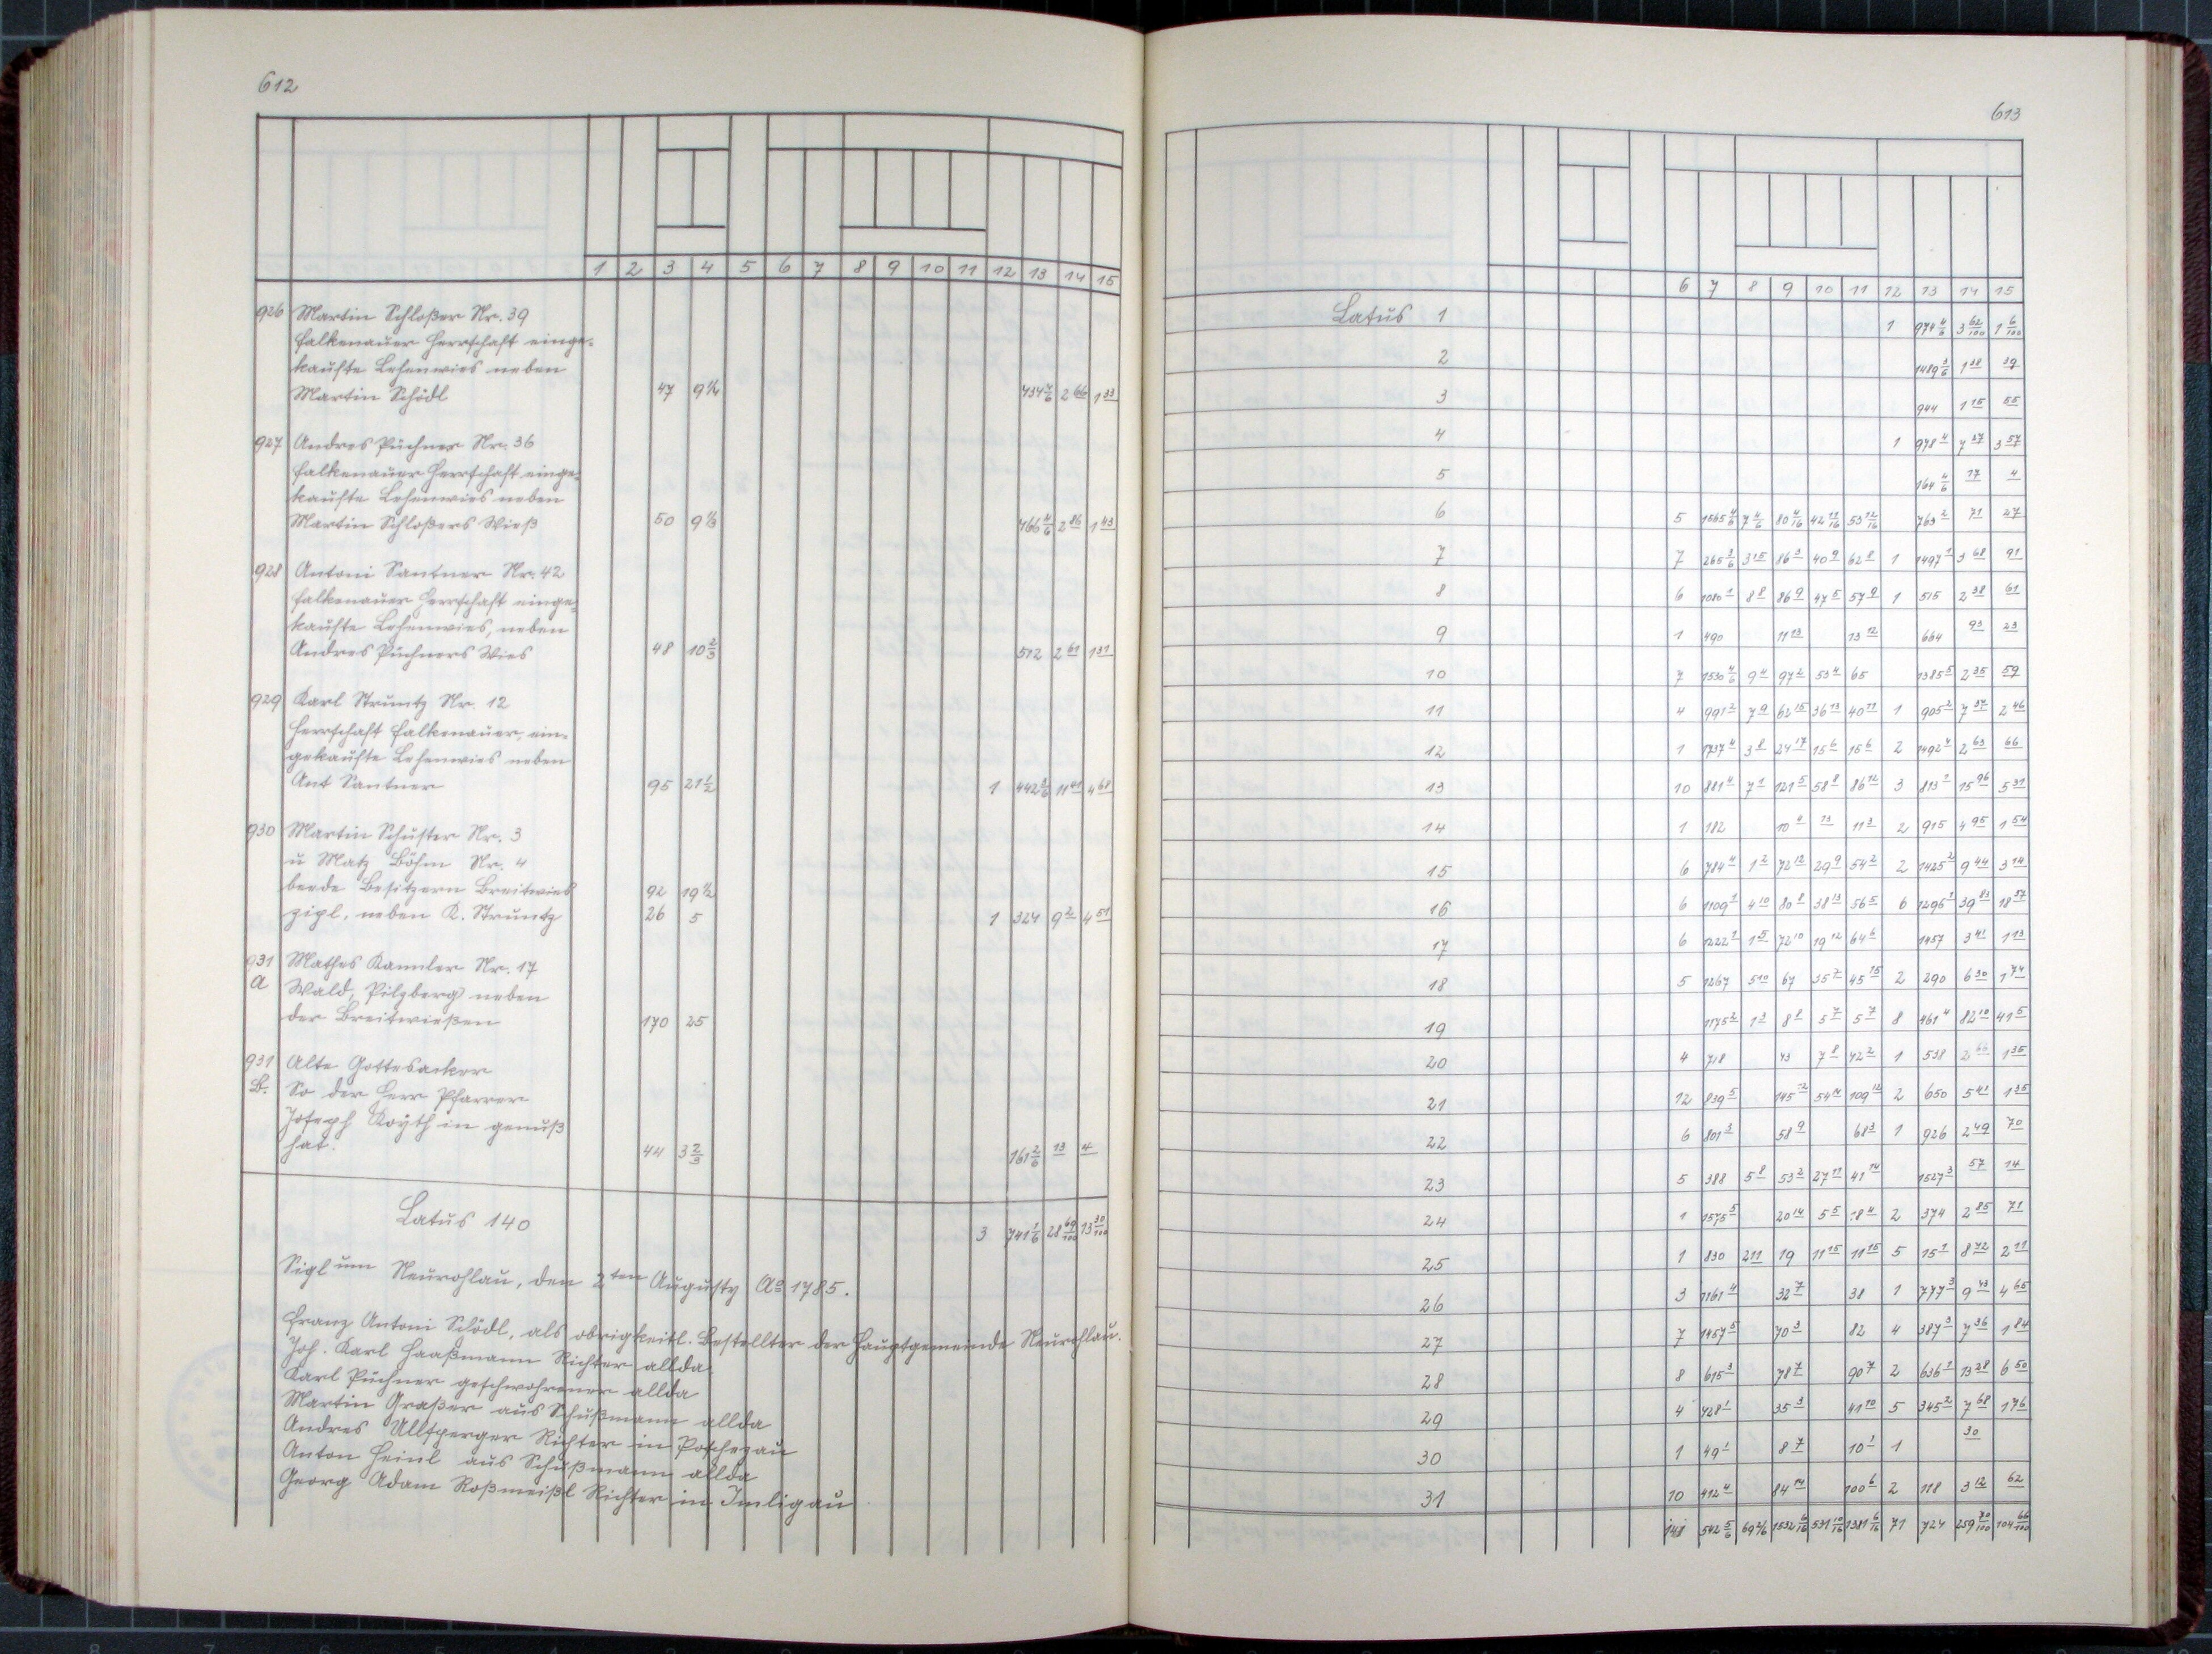 612
1 2 3 4 5 6 7 8 9 10 11 12 13 14 15
926 Martin Schloßer Nr. 39
falkenauer Herrschaft einge-
kaufte Lehenwies neben
Martin Schödl 47 9¼ 734 4/6 2 66 1 33
927 Andres Püchner Nr. 36
falkenauer Herrschaft einge-
kaufte Lehenwies neben
Martin Schloßers Wieß 50 9⅓ 766 4/6 2 86 1 43
928 Antoni Santner Nr. 42
falkenauer Herrschaft einge-
kaufte Lehenwies, neben
Andres Püchners Wies 48 10⅔ 512 2 61 1 31
929 Karl Struntz Nr. 12
Herrschaft falkenauer, ein-
gekaufte Lehenwies neben
Ant Santner 95 21½ 1 442 3/6 11 41 4 68
930 Martin Schuster Nr. 3
u Matz Böhm Nr. 4
beede Besitzern Breitwies 92 19½
zipl, neben K. Struntz 26 5 1 324 9 2 4 51
931 Mathes Kannler Nr. 17
a Wald, Pilzberg neben
der Breitwießen 170 25
931 Alte Gottesacker
b. So der Herr Pfarrer
Joseph Koyth in genuß
hat. 44 3⅔ 161 2/6 13 4
Latus 140 3 741 1/6 28 69/100 13 30/100
Siglum Neurohlau, den 2ten Augusty Ao 1785.
Franz Antoni Schödl, als obrigkeitl. Bestellter der Hauptgemeinde Neurohlau.
Joh. Karl Haaßmann Richter allda
Karl Püchner geschwohrener allda
Martin Graßer aus Schußmann allda
Andres Ullsperger Richter in Poschezau
Anton Heinl aus Schußmann allda
Georg Adam Roßmeißl Richter in Imligau
613
6 7 8 9 10 11 12 13 14 15
Latus 1 1 974 4/6 3 62/100 1 6/100
2 1489 3/6 1 38 39
3 944 1 15 55
4 1 978 4 7 37 3 57
5 164 4/6 17 4
6 5 1565 4/6 7 4/6 80 4/16 42 11/16 53 12/16 763 2 71 27
7 7 265 3/6 3 15 86 3 40 9 62 8 1 1497 1 3 68 91
8 6 1080 1 8 8 86 9 47 5 57 9 1 515 2 38 61
9 1 490 11 13 13 12 664 93 23
10 7 1530 4/6 9 4 97 2 53 4 65 1385 5 2 35 59
11 4 991 2 7 9 62 15 36 13 40 11 1 905 2 7 37 2 46
12 1 1737 4 3 8 24 17 15 6 15 6 2 1492 4 2 63 66
13 10 881 4 7 1 121 5 58 8 86 12 3 813 1 15 96 5 31
14 1 182 10 4 13 11 3 2 915 4 95 1 54
15 6 784 4 1 2 72 12 29 9 54 2 2 1425 2 9 44 3 14
16 6 1109 1 4 10 80 8 38 13 56 5 6 1296 1 39 83 18 57
17 6 1222 1 1 5 72 10 19 12 64 6 1457 3 41 1 13
18 5 1267 5 10 67 35 7 45 15 2 290 6 30 1 74
19 1175 2 1 3 8 8 5 7 5 7 8 461 4 82 10 41 5
20 4 718 43 7 8 42 2 1 538 2 66 1 35
21 12 839 5 145 2 54 14 109 12 2 650 5 41 1 35
22 6 801 3 58 9 68 3 1 926 2 49 70
23 5 388 5 8 53 2 27 11 41 14 1527 3 57 14
24 1 1575 5 20 14 5 5 18 4 2 374 2 85 71
25 1 830 2 11 19 11 15 11 15 5 15 1 8 72 2 11
26 3 1161 4 32 7 38 1 777 3 9 43 4 65
27 7 1457 5 70 3 82 4 387 3 7 36 1 84
28 8 615 3 78 7 90 7 2 636 1 13 28 6 50
29 4 428 1 35 3 41 10 5 345 2 7 68 1 76
30 1 49 1 8 7 10 1 1 30
31 10 412 4 84 14 100 6 2 118 3 12 62
141 542 5/6 69 2/6 1532 6/16 531 10/16 1381 6/16 71 724 259 70/100 104 66/100